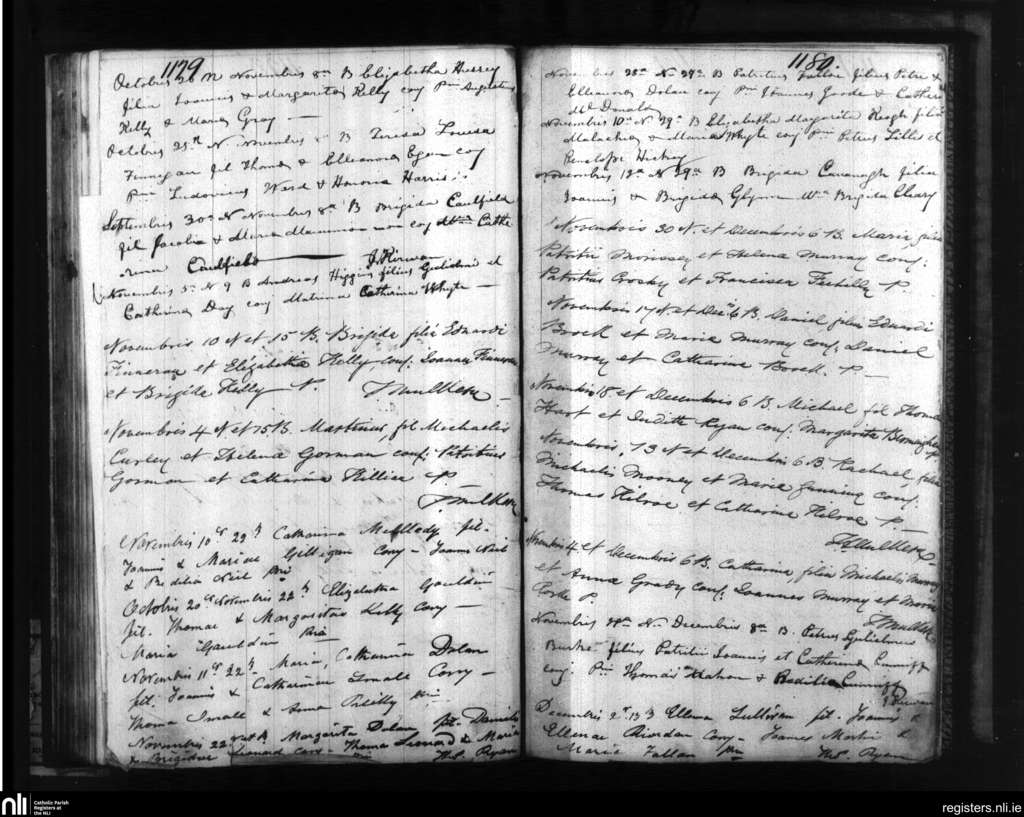 1129
Octobris 26 N Novembris 8a B Elizabetha Hussey
filia Joannis & Margarita Kelly coj Pni Augustus
Kelly & Maria Gray
Octobris 25th N. Novembris B Teresa Louisa
Finnegan fil Thoma & Elleanora Egan coj
Pni Ludovicus Ward & Honoria Harris
Septembris 30o N Novembris 8a B Brigida Caulfield
fil Jacobi & Maria non coj Cathe
rina Caulfield J Kirwan
Novembris 5o N 9 B Andreas Higgins filius Gulielmi et
Catharina Day coj Matrina Catharina Whyte
Novembris 10 N et 15 B. Brigida filia Eduardi
Finneran et Elizabetha Kelly, conj. Joannes Finneran
et Brigida Kelly P. J Mullken
Novembris 4 N et 15 B. Martinus, fil Michaelis
Curley et Helena Gorman conj. Patritius
Gorman et Catharina Killien P.
J Mullken
Novembris 10d 22d Catharina fil.
Joannis & Mariae Gilligan Conj - Joannes Neil
& Bedilia Neil Pni
Octobris 20d Novembris 22d Elizabetha Gouldin
fil. Thomae & Margaritae Kelly Conj
Maria Gauldin Pni
Novembris 11d 22d Maria, Catharina Dolan
fil. Joannis & Catharinae Conj
Thoma & Anna Reilly Pni
Novembris 22 Margarita Dolan fil. Danielis
& Brigidae Leonard Conj - Thomas Leonard & Maria
Pni Ths. Ryan
1180
Novembris 25o N 29a B Patritius Fallon filius Petri &
Elleanora Dolan coj Pni Joannes Goode & Catherina
McDonald
Novembris 10o N 29a B Elizabetha Margarita Keogh filia
Malachia & Maria Whyte coj Pni Petrus Lillis et
Penelope Hickey
Novembris 12o N 29a B Brigida Cavanagh filia
Joannis & Brigida Glynn Mna Brigida Cleary
Novembris 30 N. et Decembris 6 B. Maria filia
Patritii Morrissey et Helena Murray conj:
Patritius Crosby et Francisca P.
Novembris 17 N et Decris 6 B. Daniel filius Eduardi
Brock et Maria Murray conj: Daniel
Murray et Catharina Brock. P
Novembris 18 et Decembris 6 B. Michael fil Thoma
Hart et Judith Ryan conj: Margarita
Novembris, 13 N et Decembris 6 B. Rachael filia
Michaelis Mooney et Maria conj:
Thomas Kilroe et Catharina Kilroe P
J Mullken
Novembris 4 et Decembris 6 B. Catharina, filia Michaelis Murray
et Anna Grady conj: Joannes Murray et
P. J Mullken
Novembris N. Decembris 8a B. Petrus Gulielmus
Burke filius Patritii Joannis et Catherina Cunniff
conj. Pni Thomas Mahon & Bedilia Cunniff
J Kirwan
Decembris 2d 13th Ellena Sullivan fil. Joannis &
Ellenae Riordan Conj - James Martin &
Maria Fallon Pni Ths. Ryan
nli
Catholic Parish
Registers at
the NLI
registers.nli.ie